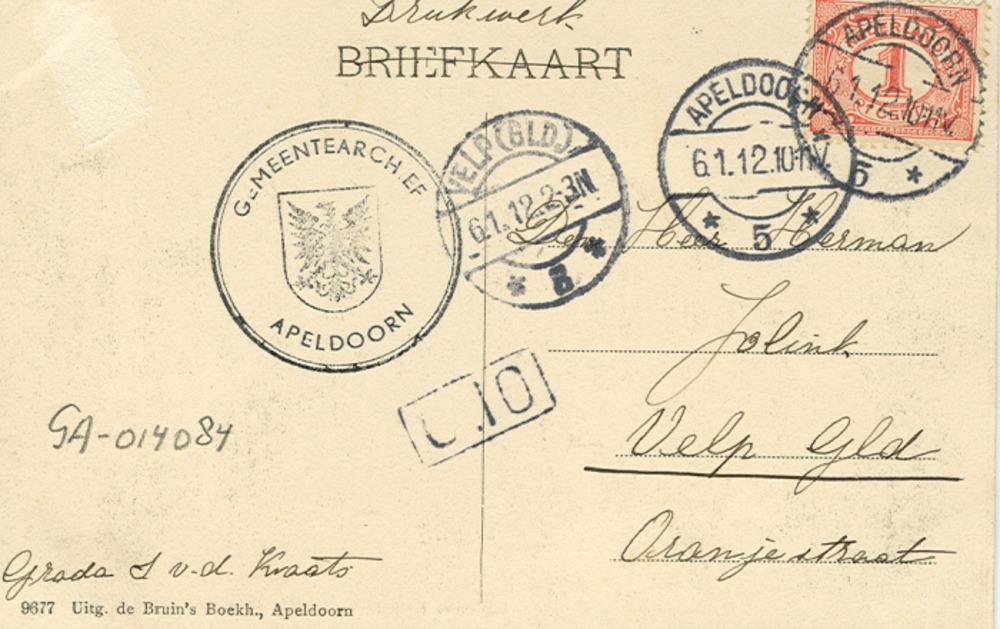 Drukwerk
BRIEFKAART
APELDOORN
6.1.12.10-11V.
5
1
APELDOORN
6.1.12.10-11V.
5
VELP (GLD)
6.1.12.2-3N
GEMEENTEARCHIEF
APELDOORN
Den Heer Herman
Jolink
Velp Gld
Oranjestraat
GA-014084
Grada J v.d. Kraats
9677 Uitg. de Bruin's Boekh., Apeldoorn